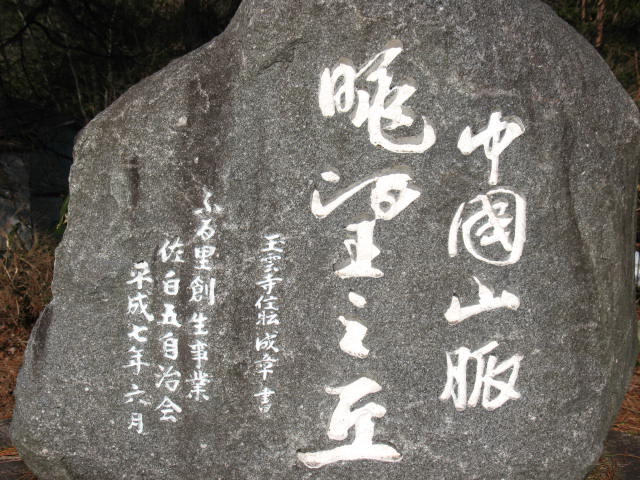 中國山脈
眺望之丘
玉雲寺住職成章書
ふる里創生事業
佐白五自治会
平成七年六月